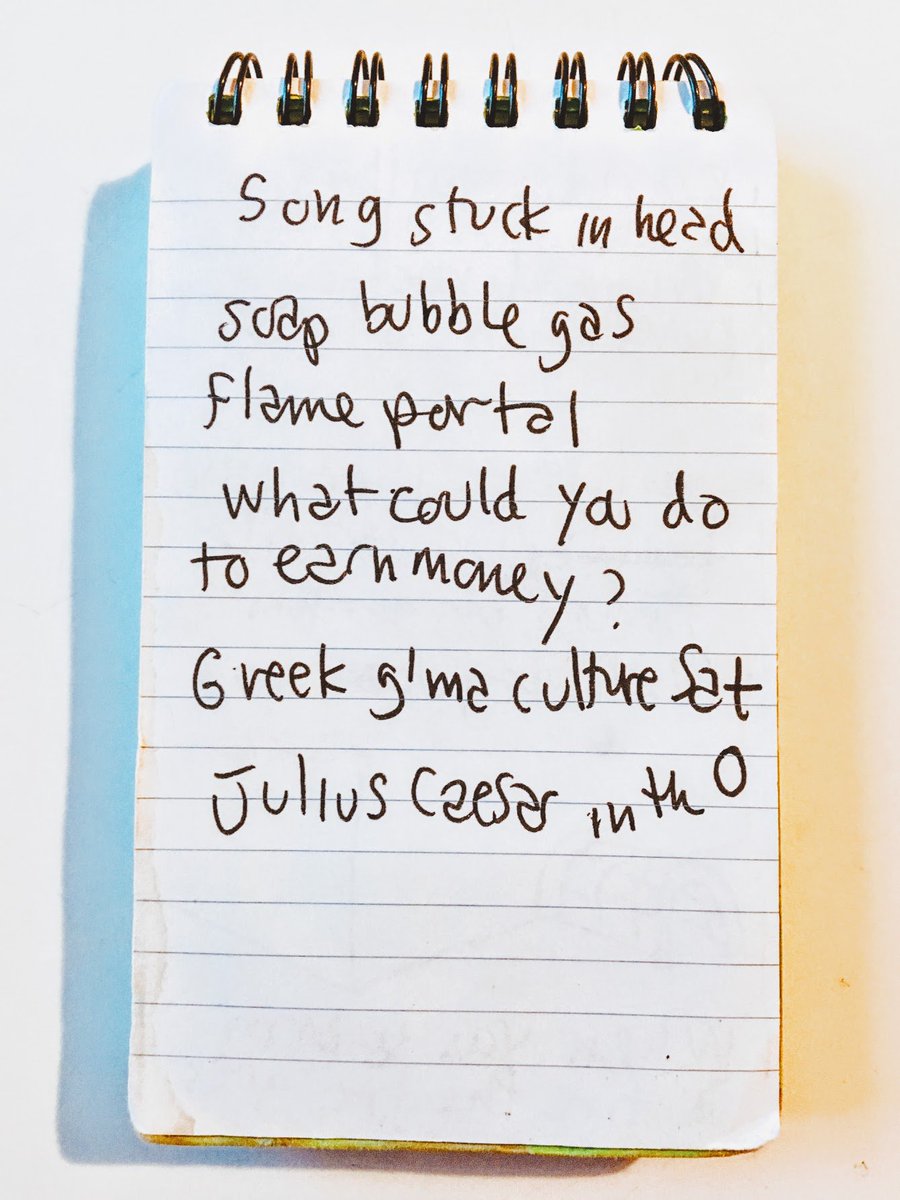 Song stuck in head
soap bubble gas
flame portal
what could you do
to earn money?
Greek g'ma culture Sat
Julius Caesar in th O